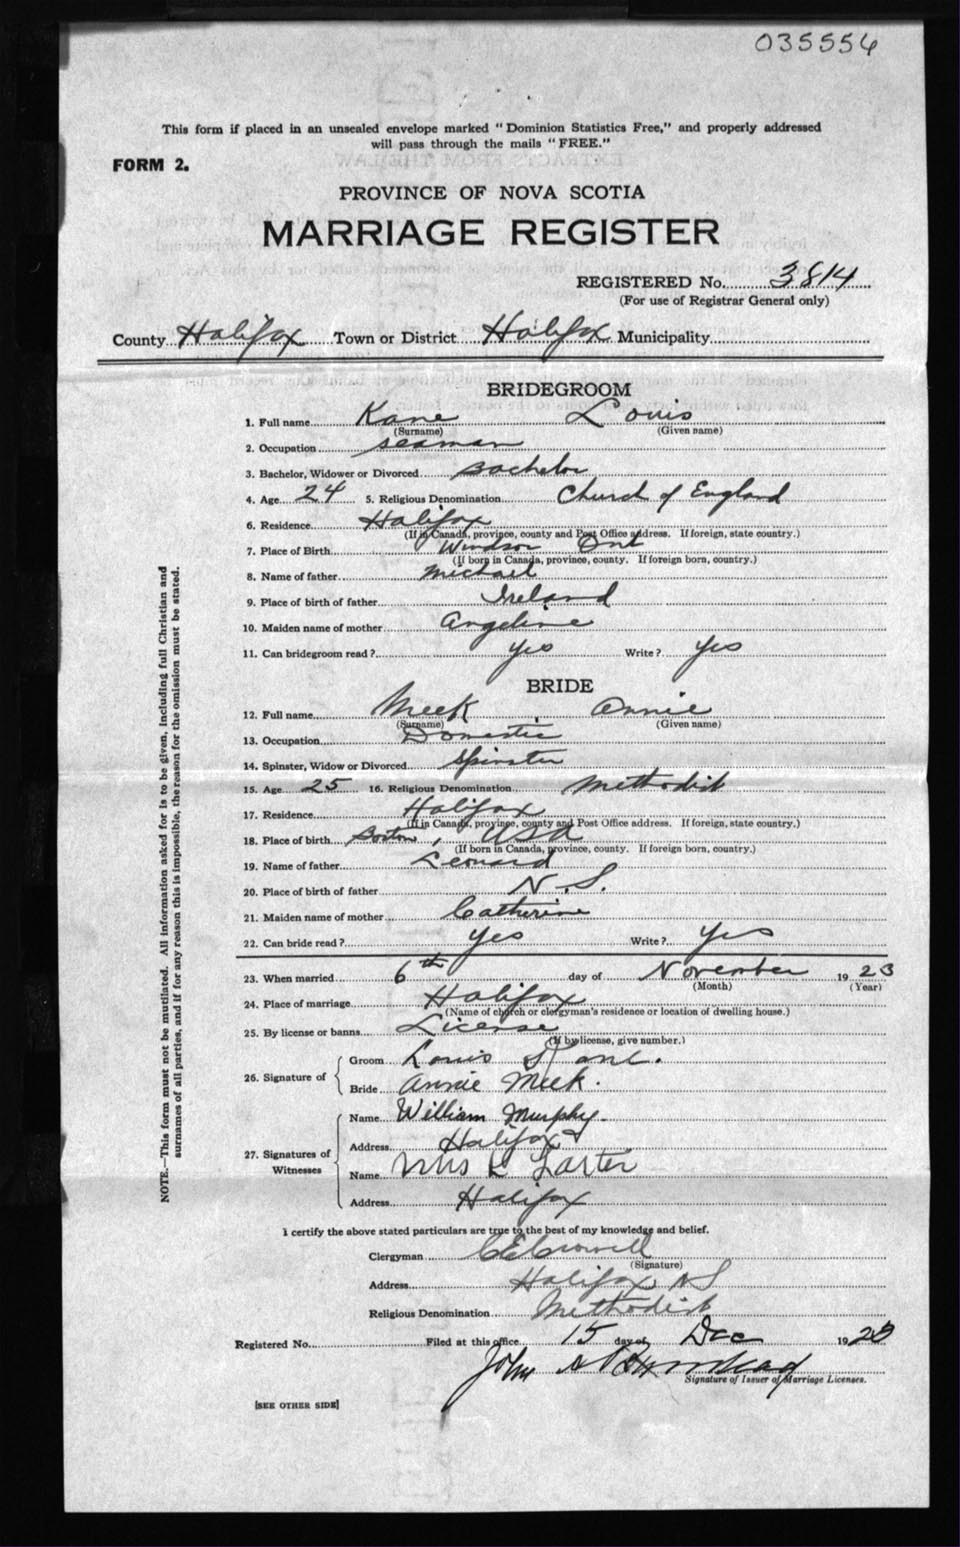 035556
This form if placed in an unsealed envelope marked "Dominion Statistics Free," and properly addressed
will pass through the mails "FREE."
FORM 2.
PROVINCE OF NOVA SCOTIA
MARRIAGE REGISTER
REGISTERED No. 3814
(For use of Registrar General only)
County Halifax Town or District Halifax Municipality
BRIDEGROOM
1. Full name Kane Louis
(Surname) (Given name)
2. Occupation seaman
3. Bachelor, Widower or Divorced Bachelor
4. Age 24 5. Religious Denomination Church of England
6. Residence Halifax
(If in Canada, province, county and Post Office address. If foreign, state country.)
7. Place of Birth Windsor Ont
(If born in Canada, province, county. If foreign born, country.)
8. Name of father Michael
9. Place of birth of father Ireland
10. Maiden name of mother Angeline
11. Can bridegroom read? Yes Write? Yes
BRIDE
12. Full name Meek Annie
(Surname) (Given name)
13. Occupation Domestic
14. Spinster, Widow or Divorced Spinster
15. Age 25 16. Religious Denomination Methodist
17. Residence Halifax
(If in Canada, province, county and Post Office address. If foreign, state country.)
18. Place of birth Boston, USA
(If born in Canada, province, county. If foreign born, country.)
19. Name of father Leonard
20. Place of birth of father N.S.
21. Maiden name of mother Catherine
22. Can bride read? Yes Write? Yes
23. When married 6th day of November 1923
(Month) (Year)
24. Place of marriage Halifax
(Name of church or clergyman's residence or location of dwelling house.)
25. By license or banns License
(If by license, give number.)
26. Signature of Groom Louis Kane.
Bride Annie Meek.
27. Signatures of Witnesses Name William Murphy.
Address Halifax
Name Mrs L Larter
Address Halifax
I certify the above stated particulars are true to the best of my knowledge and belief.
Clergyman C E Crowell
(Signature)
Address Halifax NS
Religious Denomination Methodist
Registered No. Filed at this office 15 day of Dec 1923
John
Signature of Issuer of Marriage Licenses.
[SEE OTHER SIDE]
NOTE.—This form must not be mutilated. All information asked for is to be given, including full Christian and
surnames of all parties, and if for any reason this is impossible, the reason for the omission must be stated.